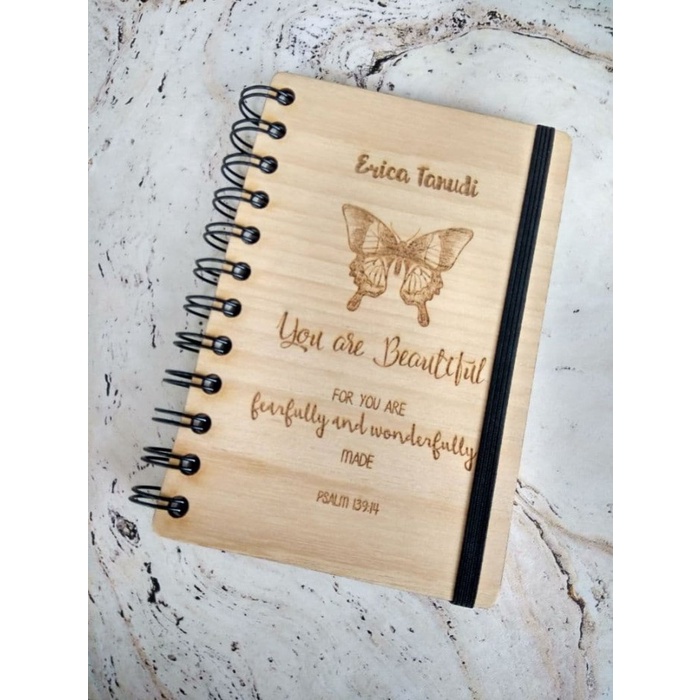 Erica Tanudi
You are Beautiful
FOR YOU ARE
fearfully and wonderfully
MADE
PSALM 139:14